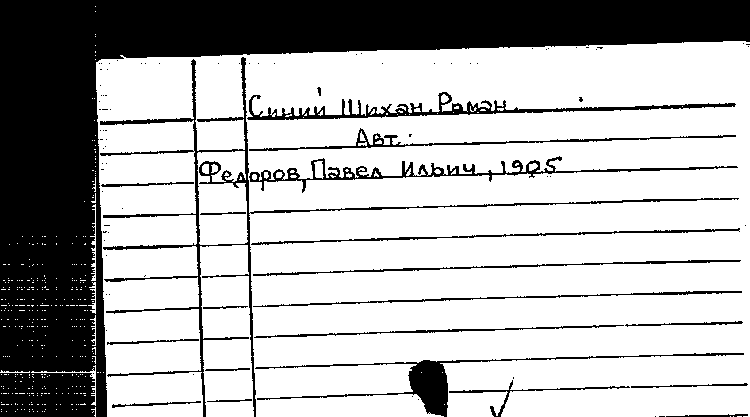 Синий Шихан. Роман.
Авт.:
Федоров, Павел Ильич, 1905